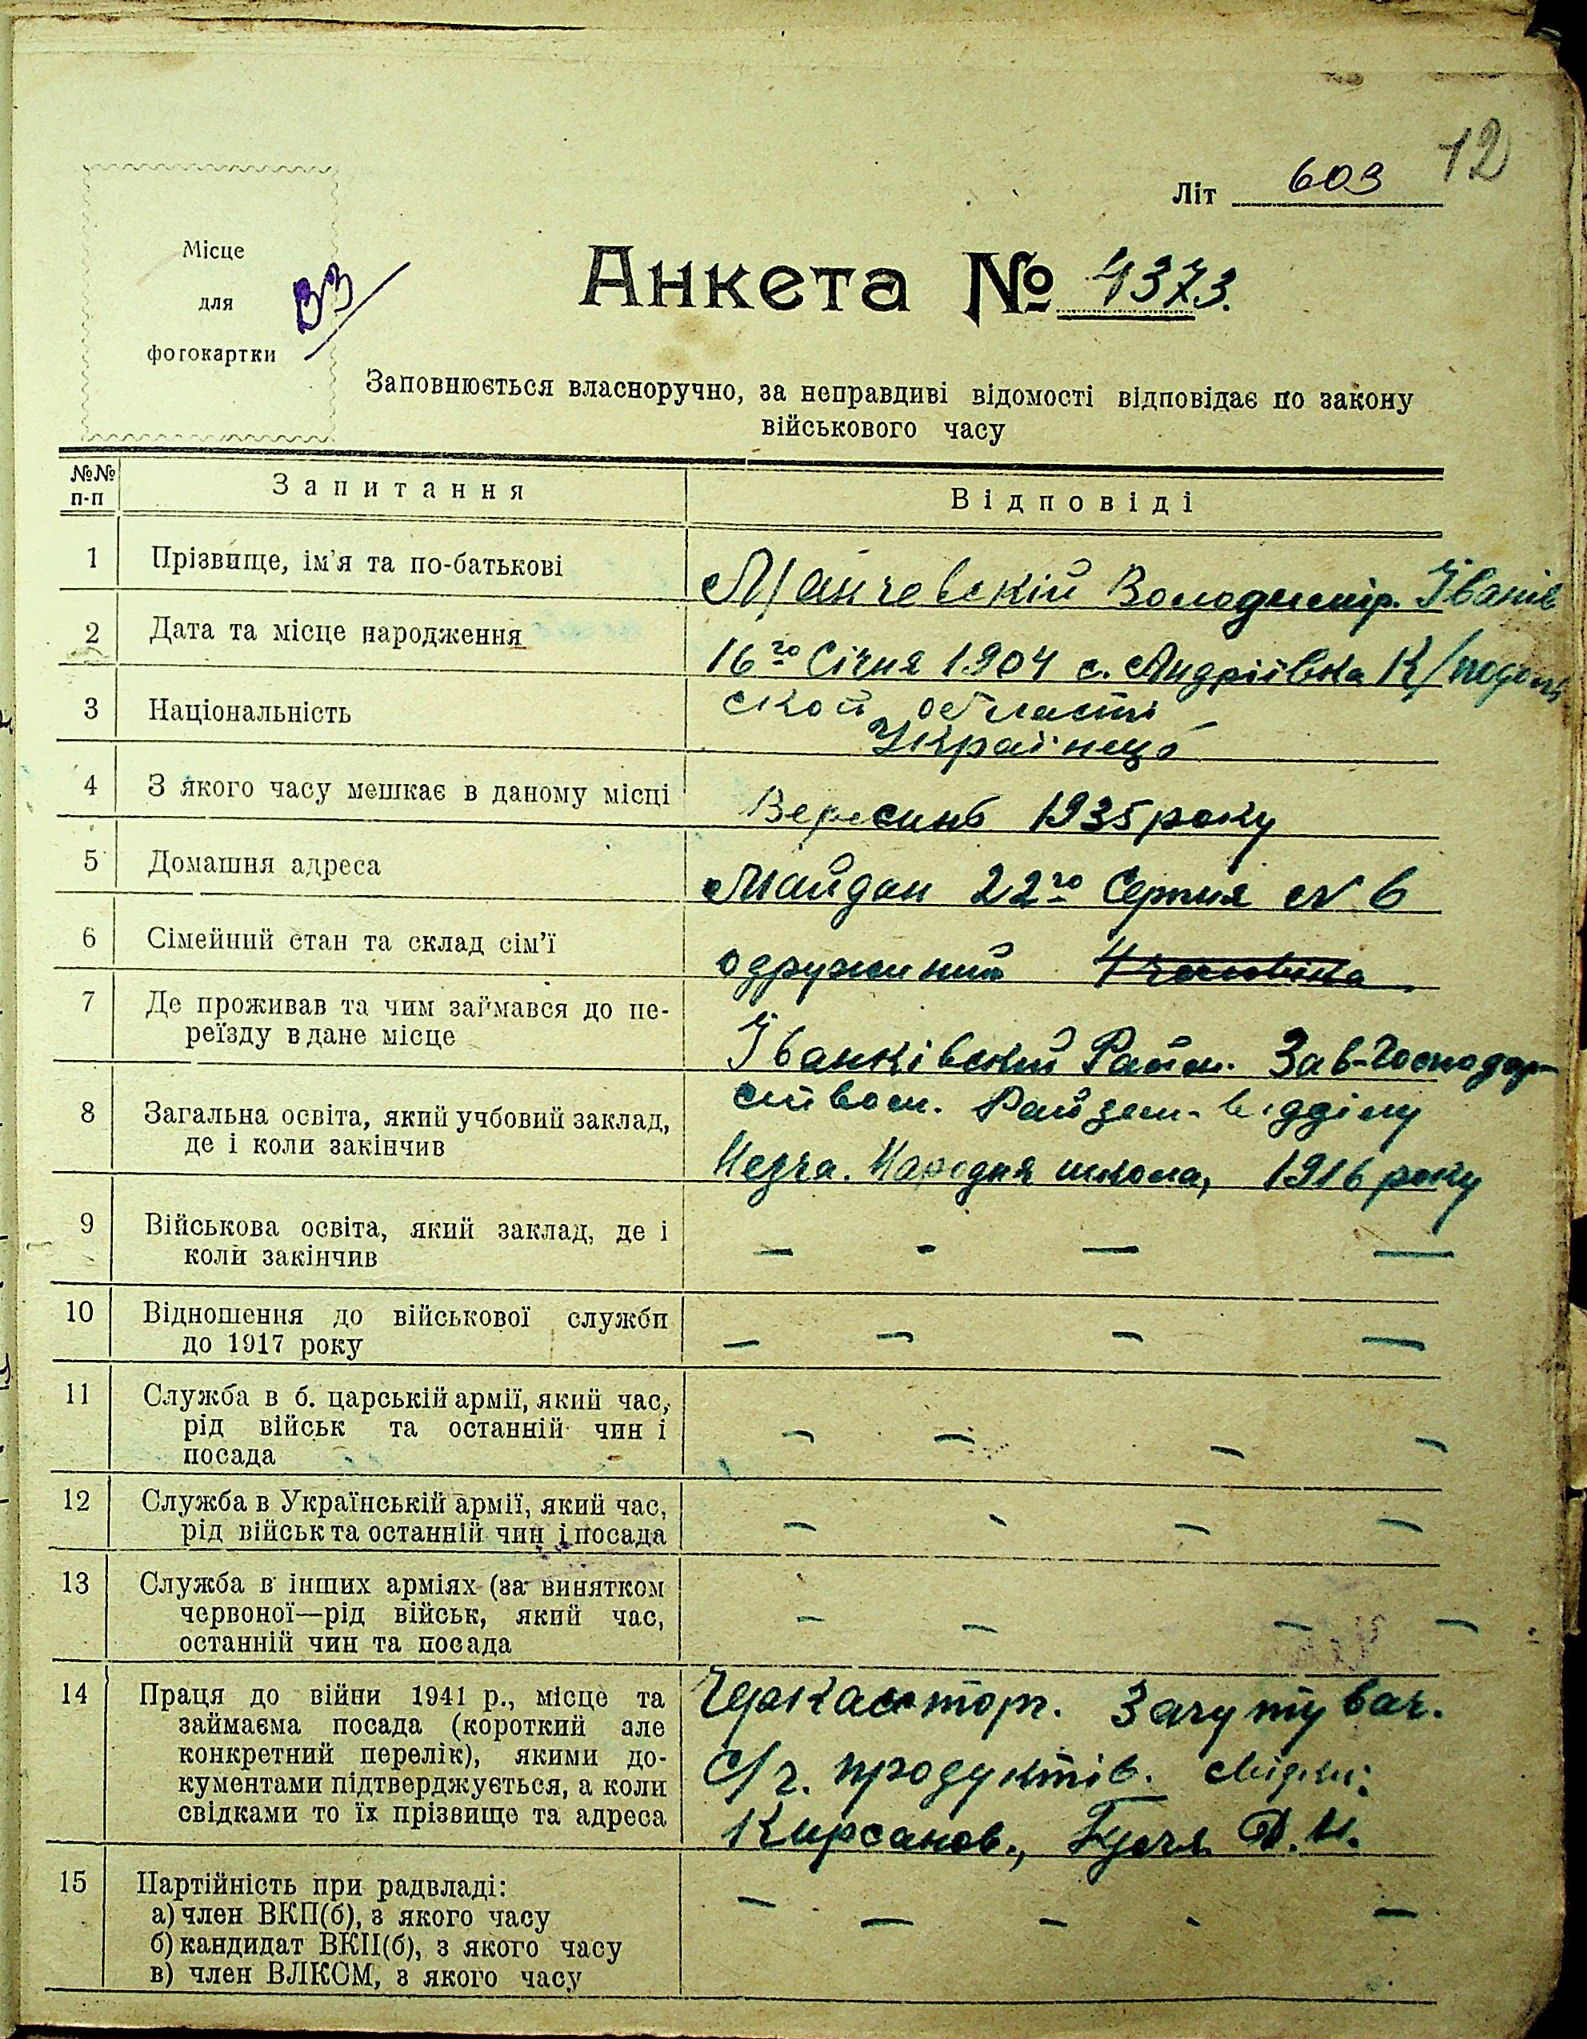 12
Літ 603
Місце
для
фотокартки
33
Анкета № 4373.
Заповнюється власноручно, за неправдиві відомості відповідає по закону
військового часу
№№
п-п
Запитання
Відповіді
1 Прізвище, ім'я та по-батькові
Володимір. Іванів
2 Дата та місце народження
16го Січня 1904 с. Андріївка К/подоль
ской області
3 Національність
Українець
4 З якого часу мешкає в даному місці
Вересинь 1935 року
5 Домашня адреса
Майдан 22го Серпня № 6
6 Сімейний стан та склад сім'ї
одружиний 4 чоловіка
7 Де проживав та чим займався до пе-
реїзду в дане місце
Іванківский Район. Зав-Господар-
ством. Райзем-відділу
8 Загальна освіта, який учбовий заклад,
де і коли закінчив
Народня школа, 1916 року
9 Військова освіта, який заклад, де і
коли закінчив
— - — —
10 Відношення до військової служби
до 1917 року
— — — —
11 Служба в б. царській армії, який час,
рід військ та останній чин і
посада
— — — —
12 Служба в Українській армії, який час,
рід військ та останній чин і посада
— - — —
13 Служба в інших арміях (за винятком
червоної—рід військ, який час,
останній чин та посада
— — — —
14 Праця до війни 1941 р., місце та
займаєма посада (короткий але
конкретний перелік), якими до-
кументами підтверджується, а коли
свідками то їх прізвище та адреса
Черкасторг.
С/г. продуктів.
Кирсанов.,
15 Партійність при радвладі:
а) член ВКП(б), з якого часу
б) кандидат ВКП(б), з якого часу
в) член ВЛКСМ, з якого часу
— — — - —